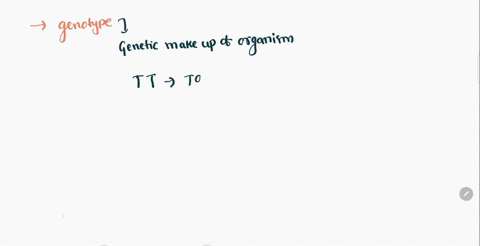 → genotype ]
Genetic make up of organism
TT → TO